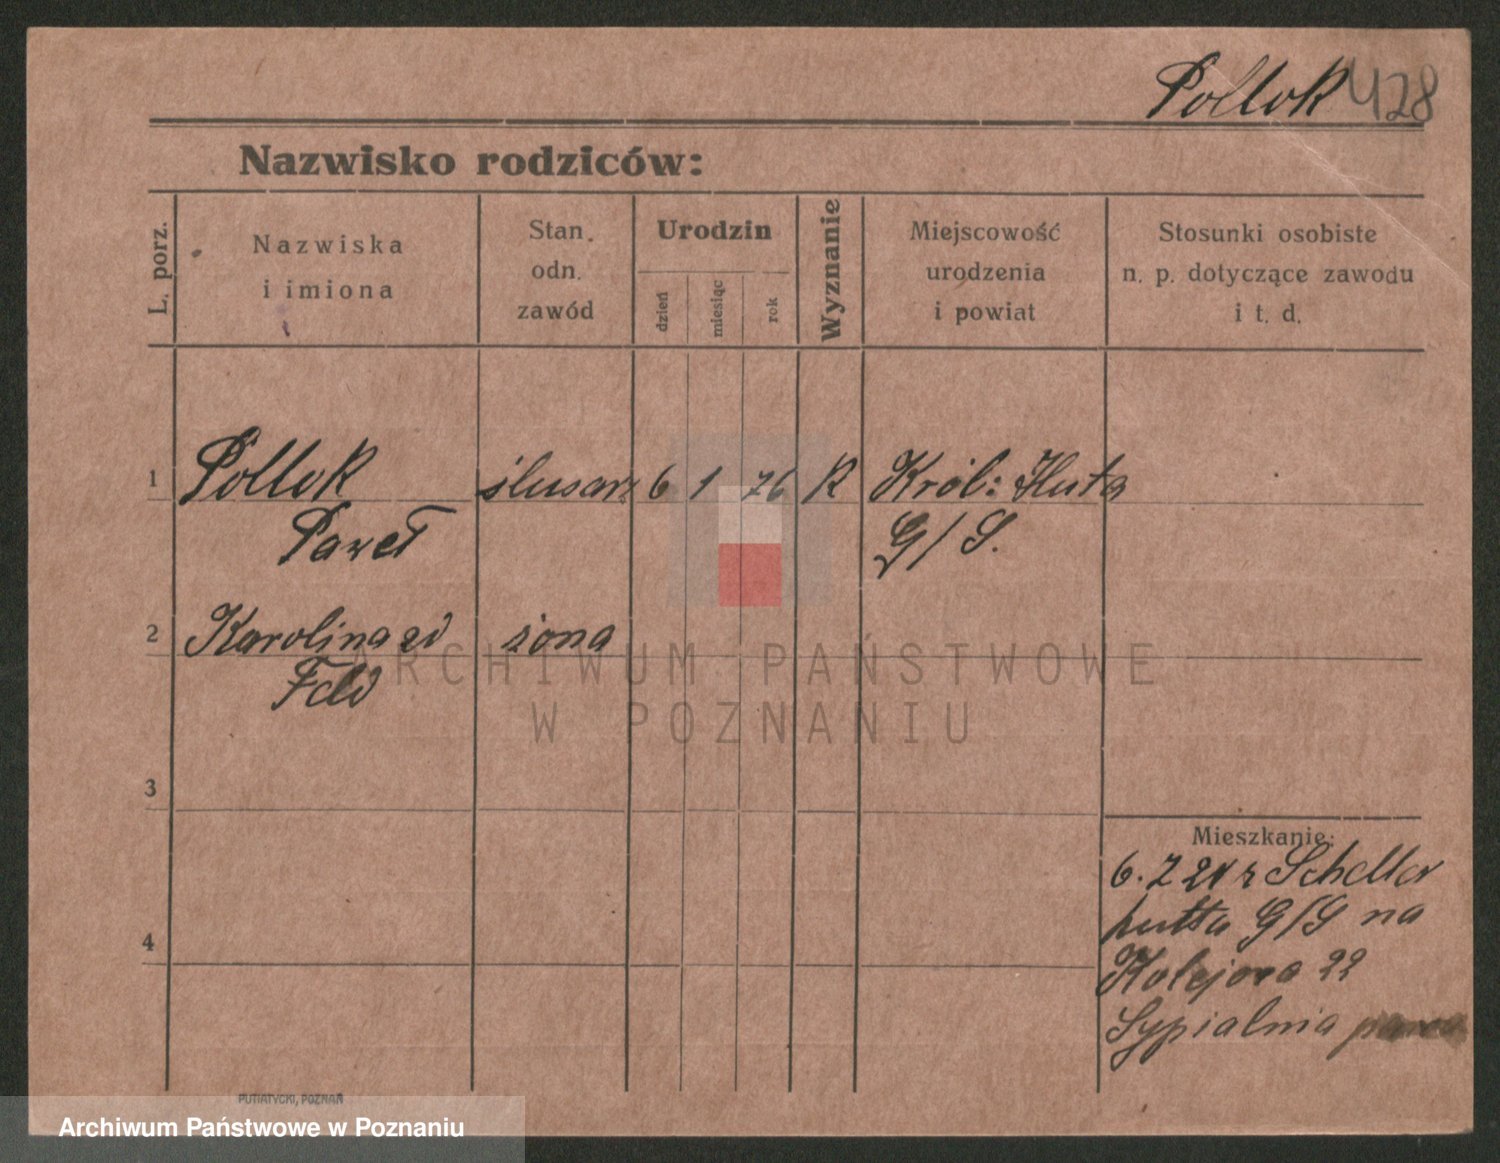 Pollok 428
Nazwisko rodziców:
L. porz.
Nazwiska
i imiona
Stan.
odn.
zawód
Urodzin
dzień
miesiąc
rok
Wyznanie
Miejscowość
urodzenia
i powiat
Stosunki osobiste
n. p. dotyczące zawodu
i t. d.
1 Pollok ślusarz 6 1 76 R Król: Huta
Paweł G/S.
2 Karolina zd żona
Feld
3
4
Mieszkanie:
6. 7 21 z Scheller
hutta G/S na
Kolejowa 22
Sypialnia
ARCHIWUM PAŃSTWOWE
W POZNANIU
PUTIATYCKI, POZNAŃ
Archiwum Państwowe w Poznaniu